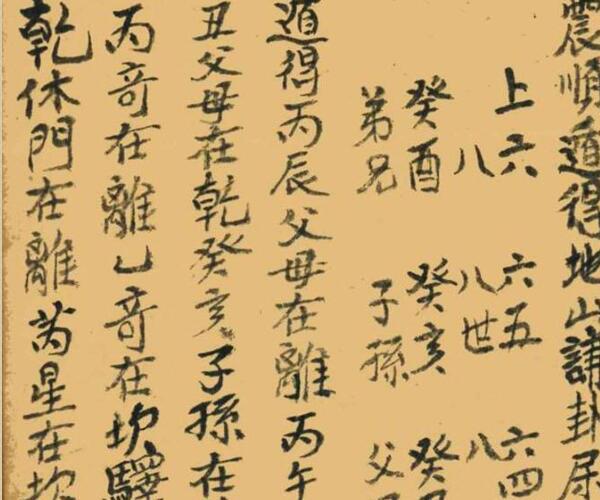 震順遁得地山謙卦屬
上六 六五 六四
八 八世 八
癸酉 癸亥 癸
弟兄 子孫 父
遁得丙辰父母在離丙午
丑父母在乾癸亥子孫在
丙奇在離乙奇在坎驛
乾休門在離芮星在坎